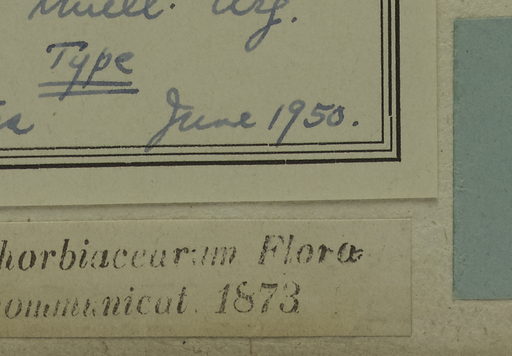 Muell. Arg.
Type
June 1950.
horbiacearum Flora
communicat. 1873